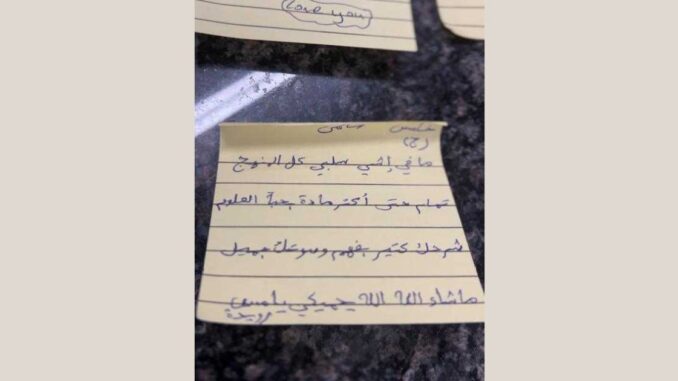 Love you
خامس
(ج)
ما في إشي سلبي كل المنهج
تمام حتى أكتر مادة بحبا العلوم
شرحك كتير بفهم وصوتك جميل
ماشاء الله الله يحميكي يا مس